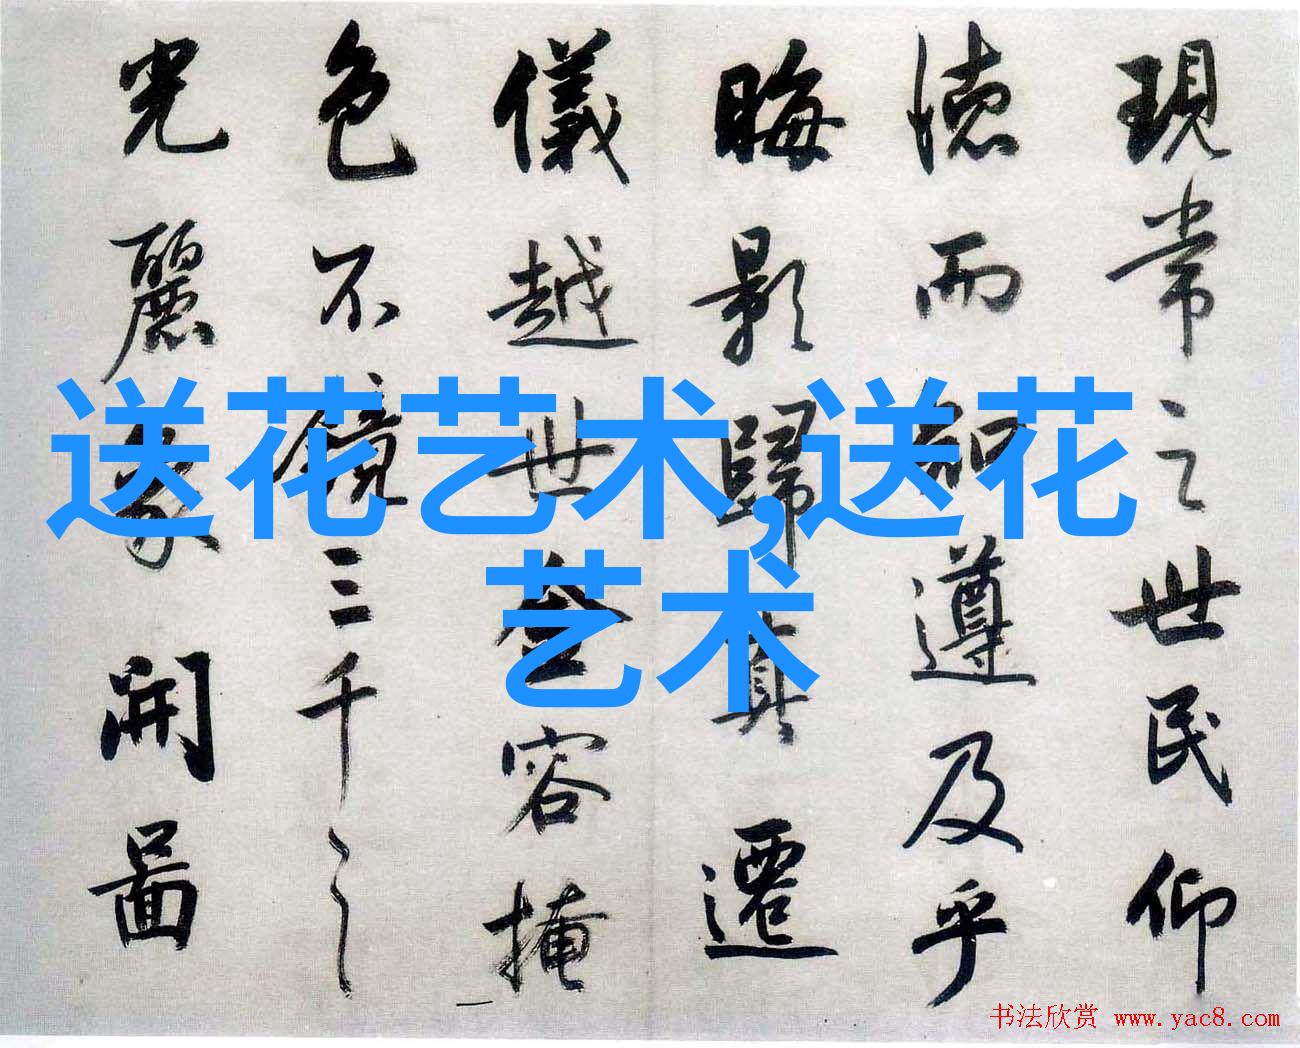 現常之世民仰
德而知遵及乎
晦影歸真遷
儀越世金容掩
色不鏡三千之
光麗象開圖
送花艺术,送花
艺术
书法欣赏 www.yac8.com